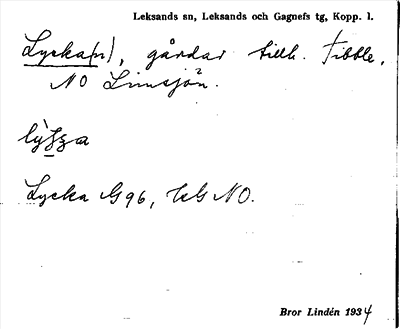 Leksands sn, Leksands och Gagnefs tg, Kopp. l.
Lycka(n), gårdar tillh. Tibble,
NO Limsjön.
Lycka G96, NO.
Bror Lindén 1934